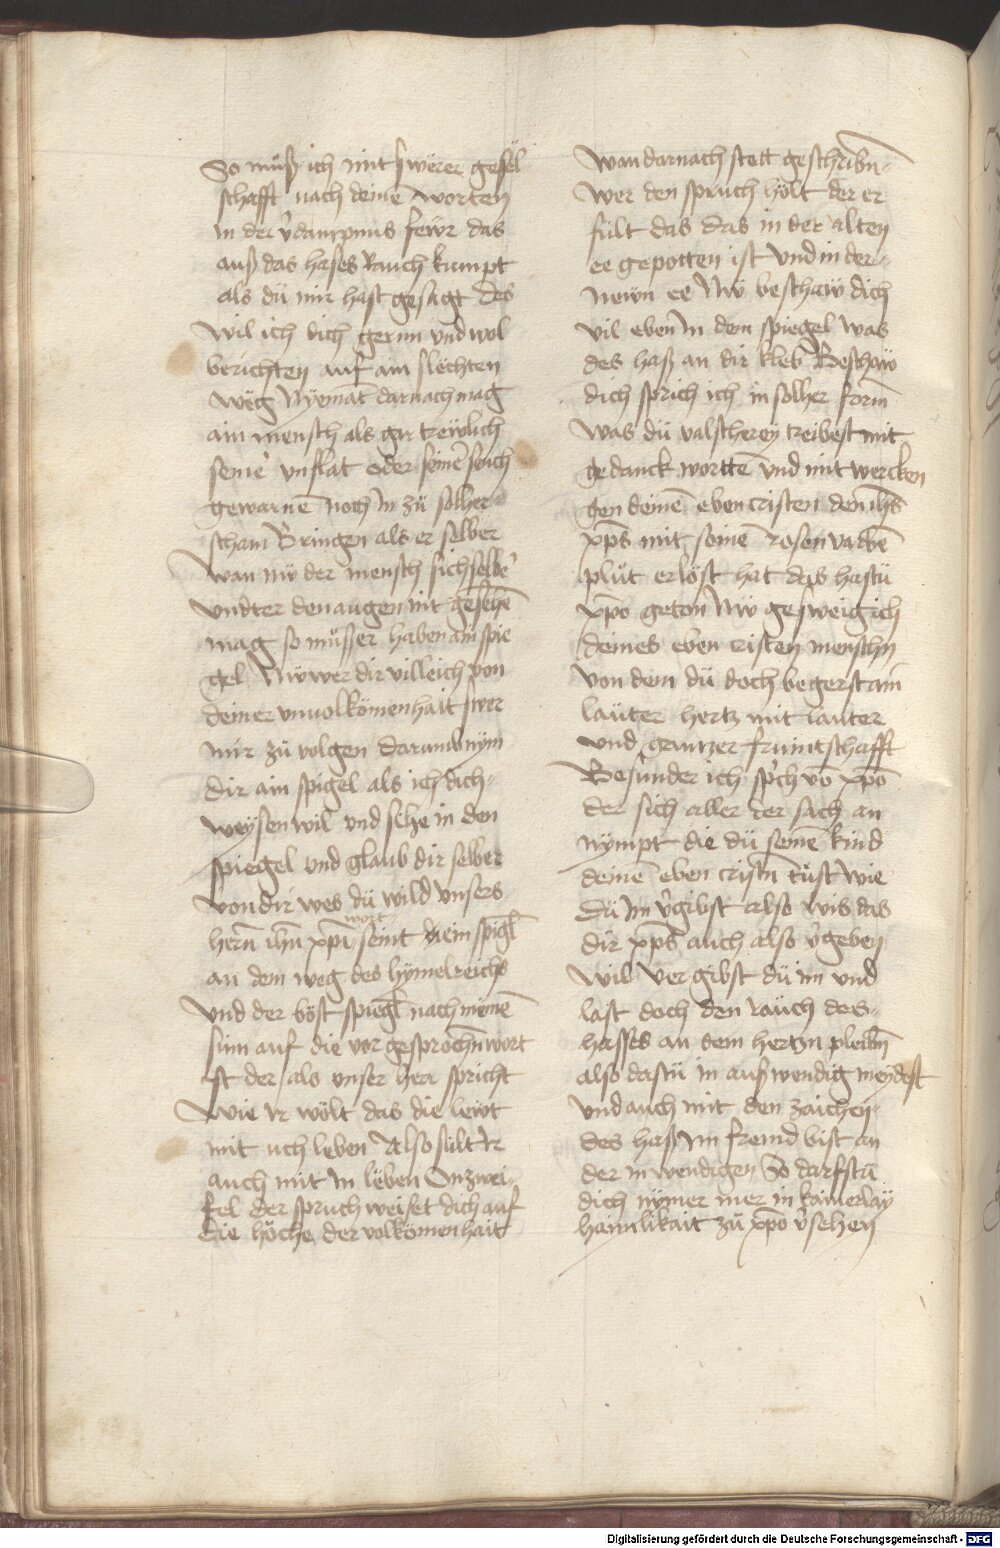 So müß ich mit swërer gesel
schafft nach deinē worten
in der v̄dampnüs fewr das
auß das hases rauch kumpt
als dü mir hast gesagt Des
wil ich dich gernn und wol
berichten auf ain slëchten
wëg Nyemāt darnach mag
ain mensch als gar trewlich
seinē unflat oder seinē seuch
gewarnē noch in zü solher
scham Bringen als er selber
Wan nü der mensch sich selbē
undter den augen nit gesehē
mag so müss er haben ain spie
gel Nü wer dir villeich von
deiner unvolkömenhait swer
mir zü volgen darumb nym
dir ain spigel als ich dich
weysen wil und sehe in den
spiegel und glaub dir selber
von dir wes dü wild unsers
hern̄ ihū xpi wort seint dein spigl̄
an dem weg des hymelreichs
und der böst spiegl̄ nach meinē
sinn auf die vor gesprochn̄ wort
ist der als unser herr spricht
Wie ir wölt das die lewt
mit uch leben Also sült ir
auch mit in lëben On zwei
fel der spruch weiset dich auf
die höche der volkömenhait
Wan darnach stett geschribn̄
Wer den spruch hölt der er
fült das das in der alten
ee gepotten ist und in der
newn ee Nü beschaw dich
vil eben in dem spiegel was
des haß an dir kleb Beschaw
dich sprich ich in solher form
Was dü valscherey treibest mit
gedanck worttē und mit wercken
gen deinē eben cristen den ihs̄
xp̄s mit seinē rosenvarbē
plüt erlöst hat das hastü
xp̄o geton Nü gesweig ich
deines eben cristen menschn
von dem dü doch begerst ain
lauter hertz mit lauter
und gantzer fruntschafft
Besünder ich sp̄ch vō xp̄o
der sich aller der sach an
nympt die dü seinē kind
deinē eben cristn̄ tüst Wie
dü im v̄gibst also wis das
dir xp̄s auch also v̄geben
wil ver gibst dü im und
last doch den rauch des
hasses an dem hertzn pleibn̄
also dastü in außwendig meydest
und auch mit den zaichen
des haß im fremd bist an
der inwendigen So darfstü
dich nymer mer in kainerlay
haimlikait zü xp̄o v̄sehen
Digitalisierung gefördert durch die Deutsche Forschungsgemeinschaft - DFG